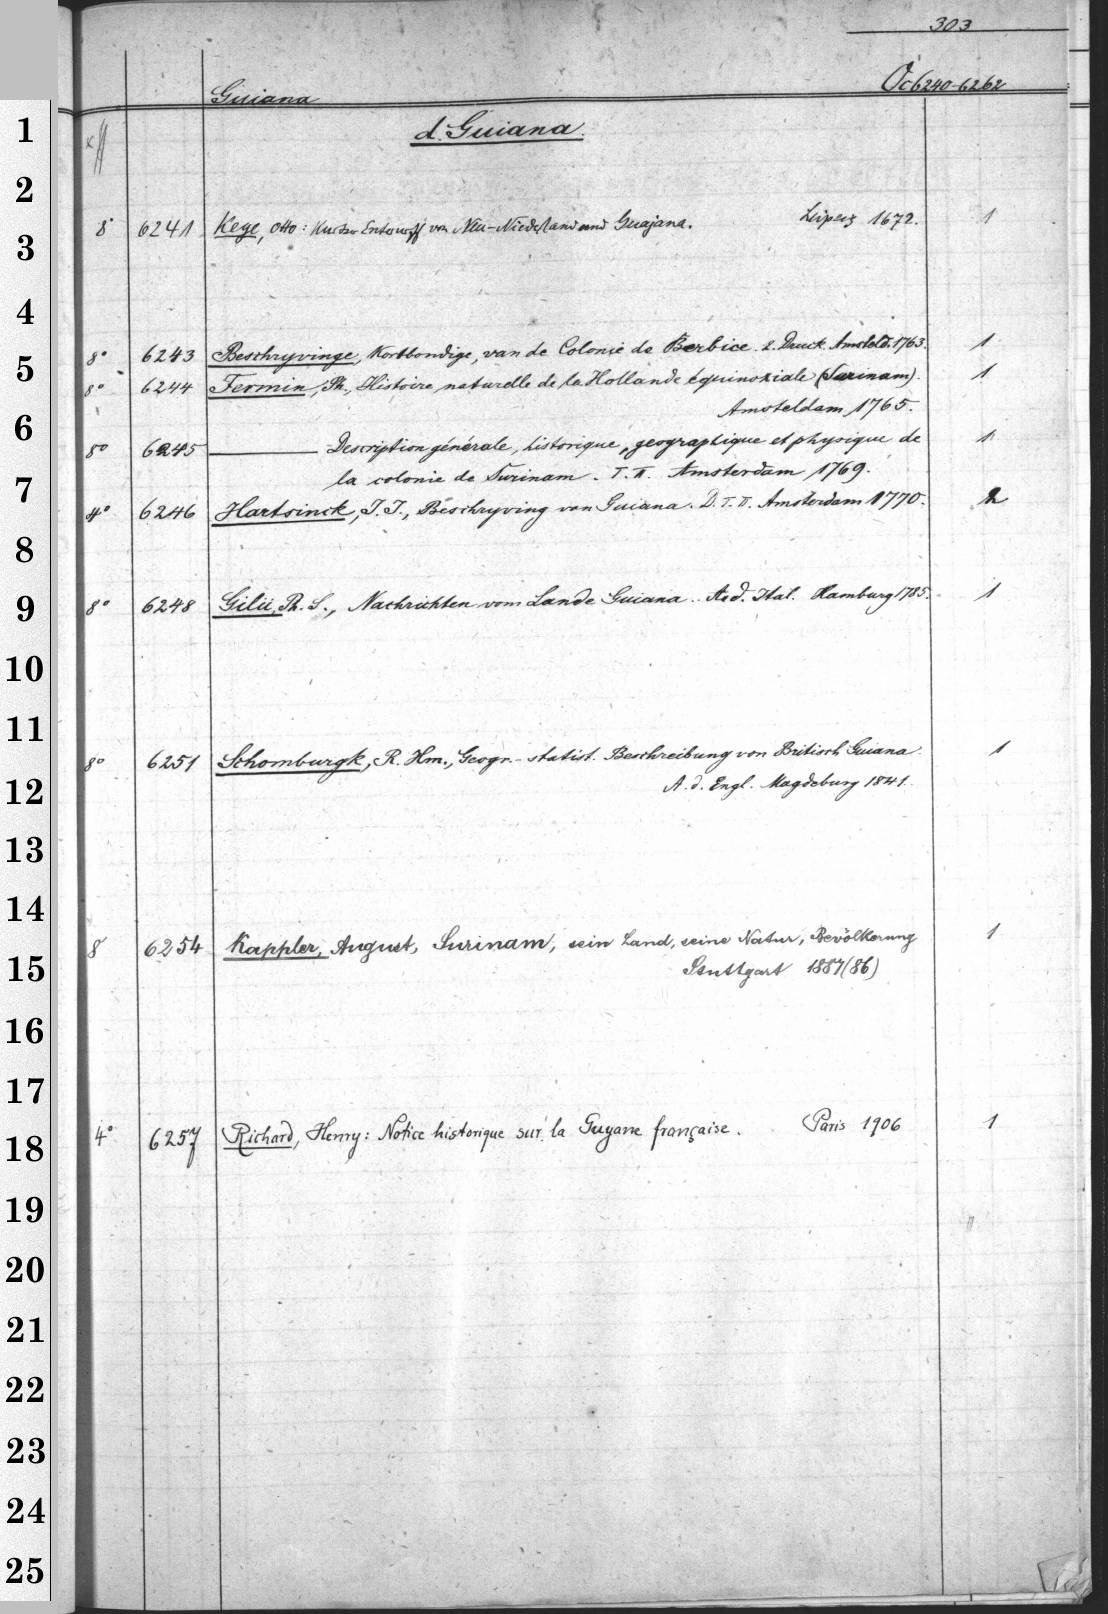 303
Guiana Oc 6240-6262
1
d. Guiana.
2
8° 6241 Kege, Otto: Kurtzer Entwurff von Neu-Niederland und Guajana. Leipzig 1672. 1
3
4
8° 6243 Beschryvinge, Kortbondige, van de Colonie de Berbice. 2. Druck. Amsteld. 1763. 1
5
8° 6244 Fermin, Ph., Histoire naturelle de la Hollande équinoxiale (Surinam). 1
Amsteldam 1765.
6
8° 6245 ——— Description générale, historique, geographique et physique de 1
la colonie de Surinam. T. II. Amsterdam 1769.
7
4° 6246 Hartsinck, J. J., Beschryving van Guiana. D. T. II. Amsterdam 1770. 2
8
8° 6248 Gilii, Ph. S., Nachrichten vom Lande Guiana. A. d. Ital. Hamburg 1785. 1
9
10
11
8° 6251 Schomburgk, R. Hm., Geogr.-statist. Beschreibung von Britisch Guiana. 1
A. d. Engl. Magdeburg 1841.
12
13
14
8° 6254 Kappler, August, Surinam, sein Land, seine Natur, Bevölkerung 1
Stuttgart 1887(86)
15
16
17
4° 6257 Richard, Henry: Notice historique sur la Guyane française. Paris 1906 1
18
19
20
21
22
23
24
25